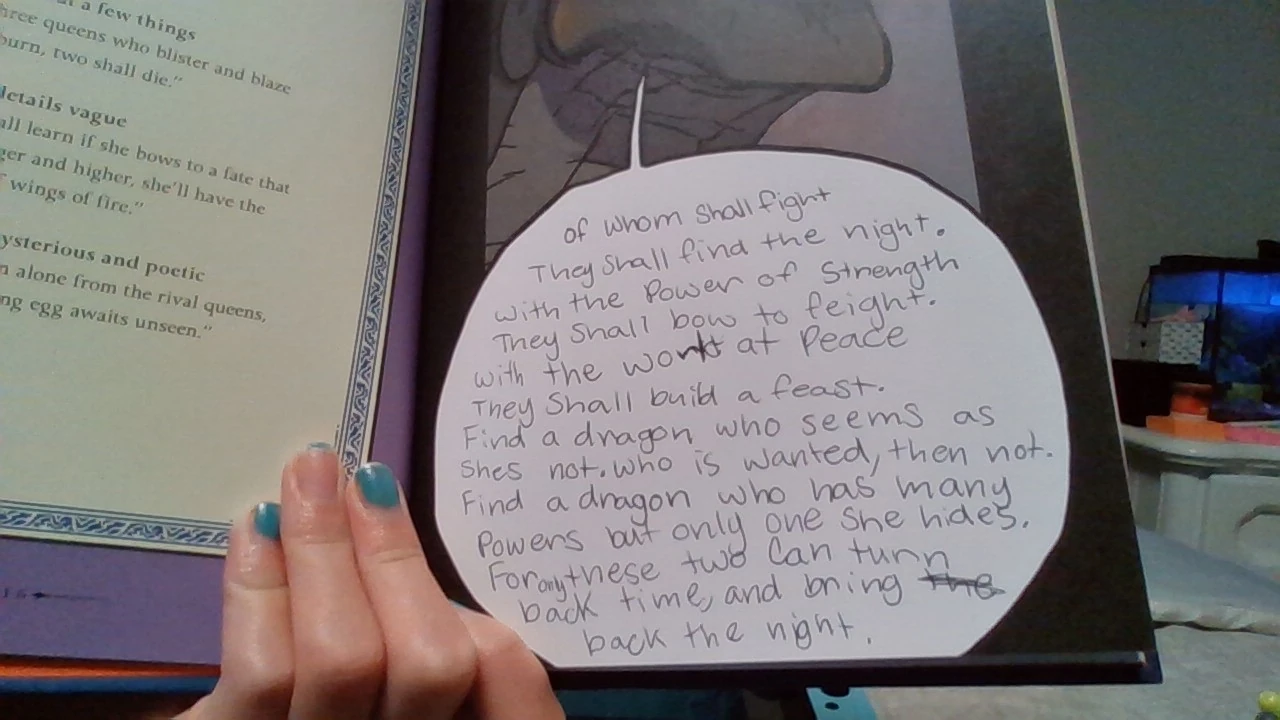 a few things
hree queens who blister and blaze
burn, two shall die."
details vague
all learn if she bows to a fate that
ger and higher, she'll have the
wings of fire."
ysterious and poetic
n alone from the rival queens,
ng egg awaits unseen."
of whom shall fight
They shall find the night.
with the Power of Strength
They Shall bow to feight.
with the work at Peace
They Shall build a feast.
Find a dragon who seems as
shes not. who is wanted, then not.
Find a dragon who has many
Powers but only one she hides.
For only these two can turn
back time, and bring the
back the night.